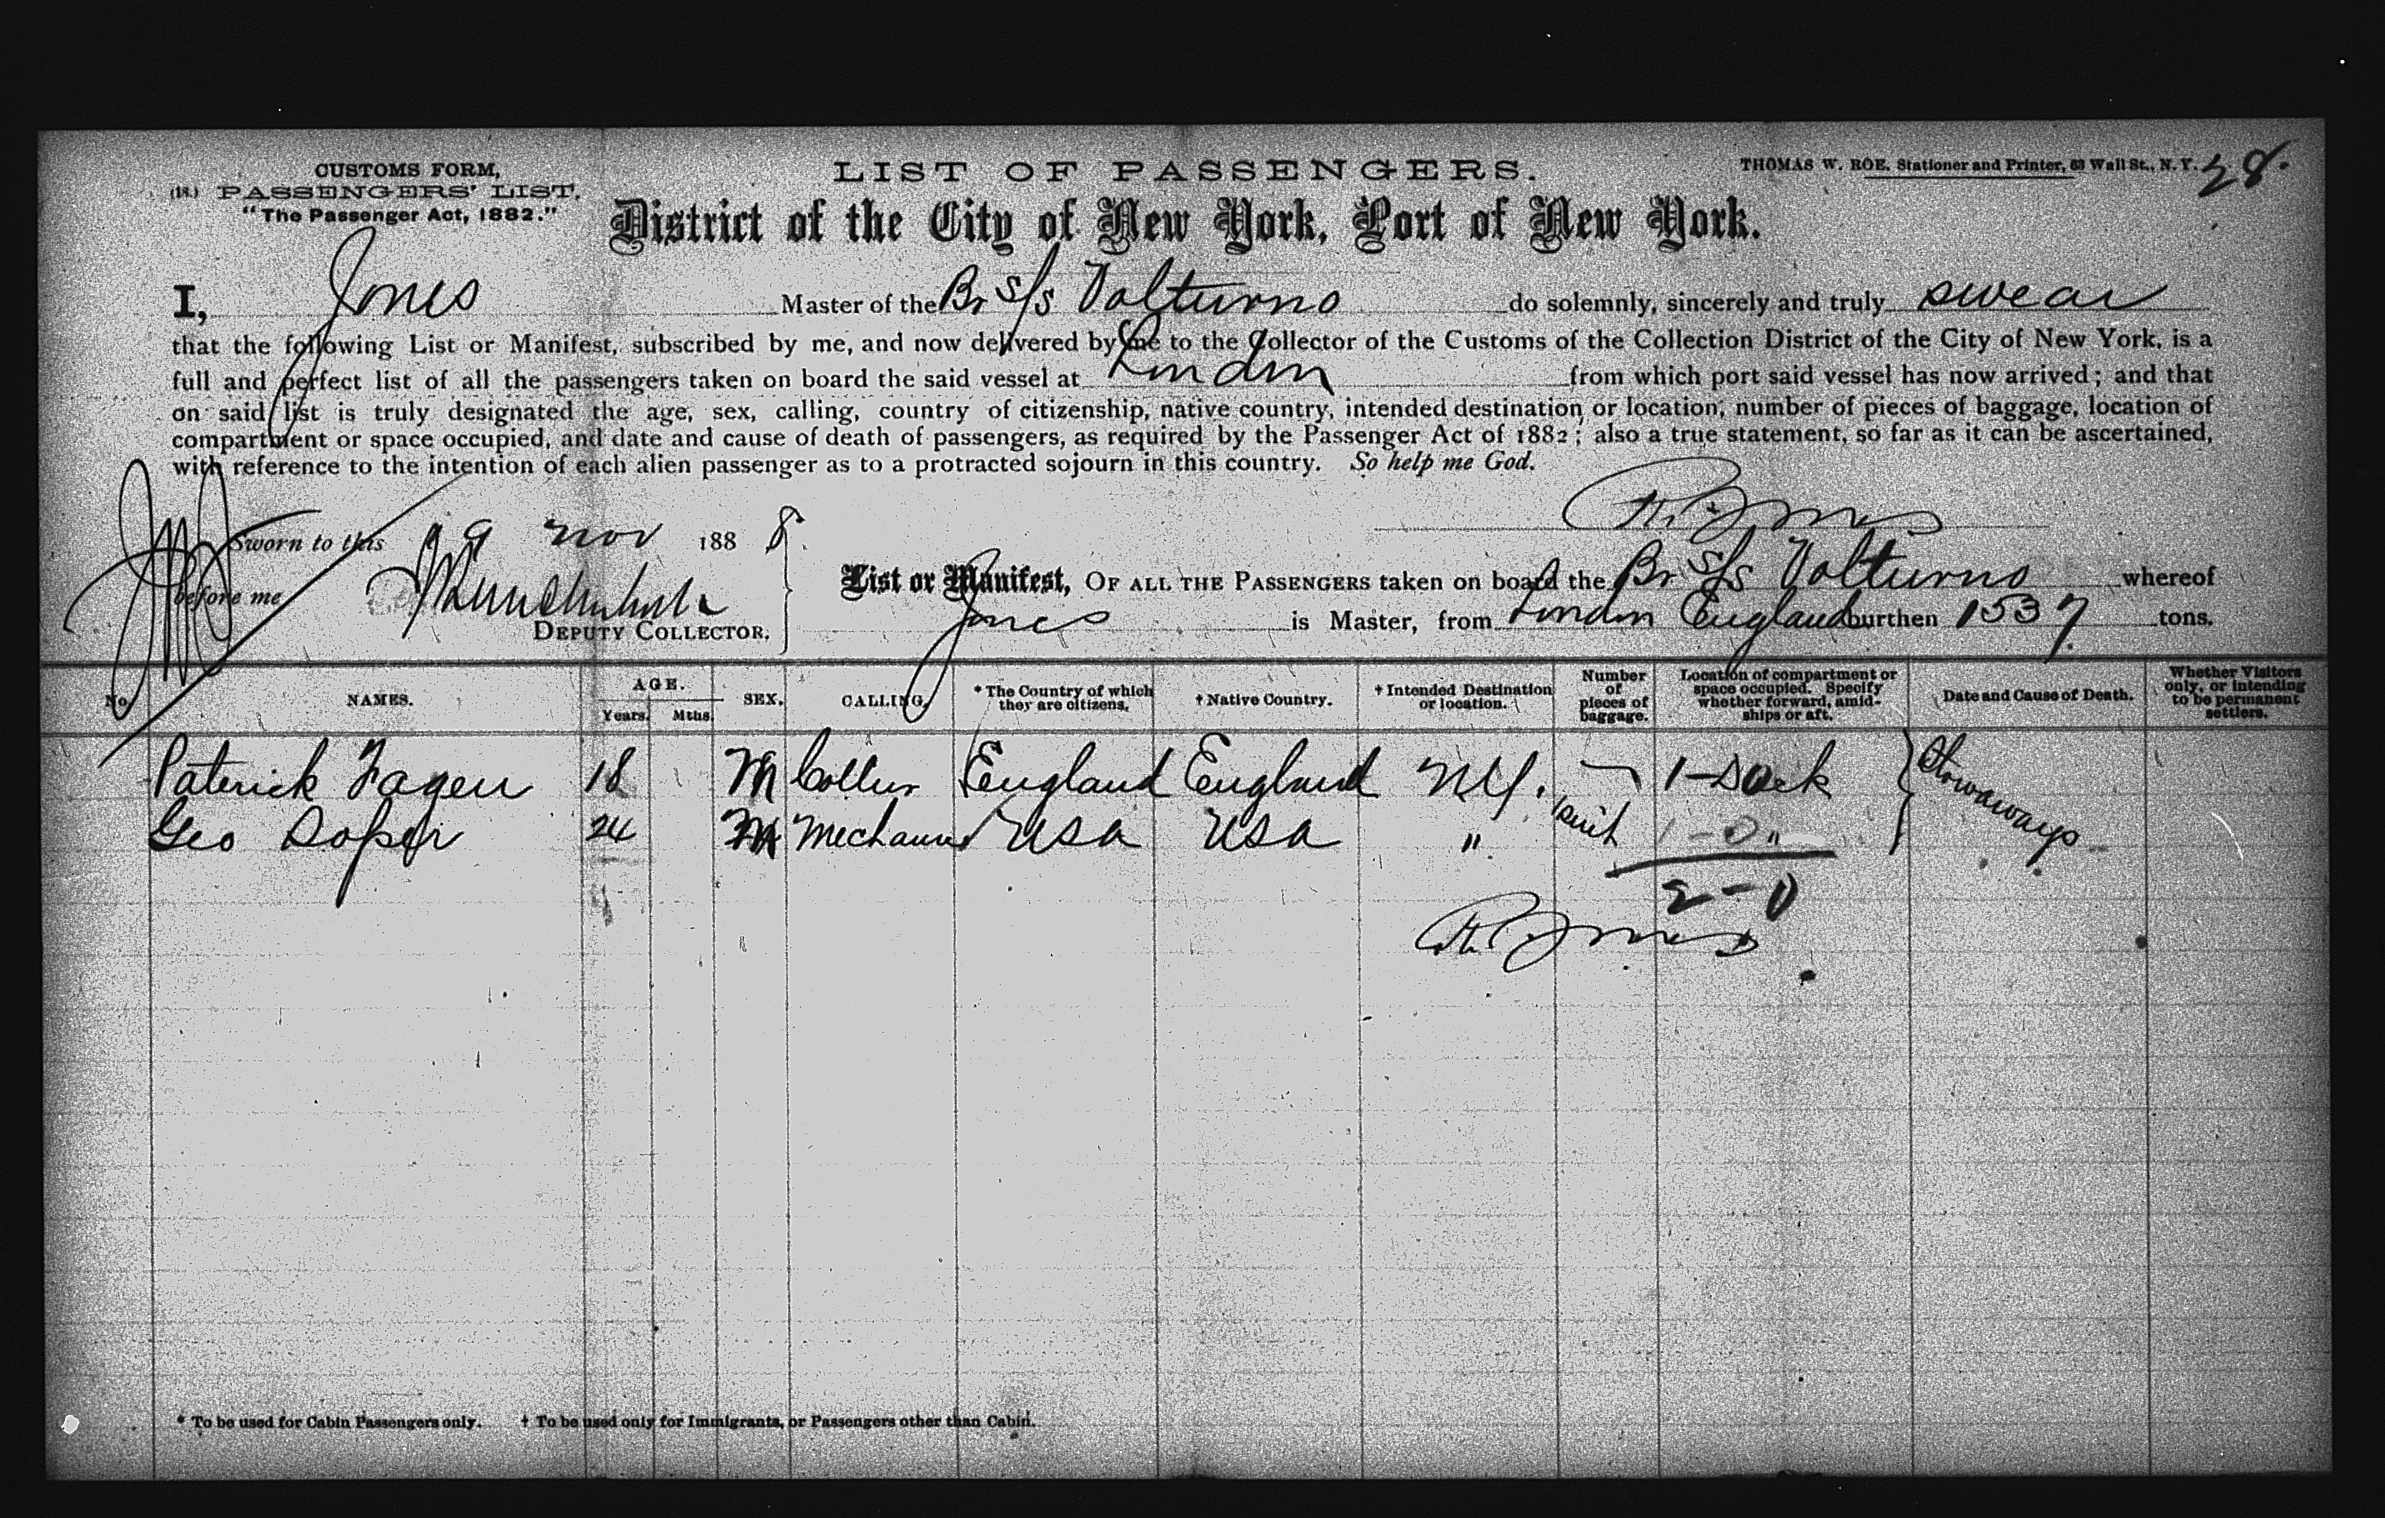 CUSTOMS FORM,
(18.) PASSENGERS' LIST,
"The Passenger Act, 1882."
LIST OF PASSENGERS.
THOMAS W. ROE. Stationer and Printer, 63 Wall St., N. Y.
28.
District of the City of New York, Port of New York.
I, Jones Master of the Br S/s Volturno do solemnly, sincerely and truly swear
that the following List or Manifest, subscribed by me, and now delivered by me to the Collector of the Customs of the Collection District of the City of New York, is a
full and perfect list of all the passengers taken on board the said vessel at London from which port said vessel has now arrived; and that
on said list is truly designated the age, sex, calling, country of citizenship, native country, intended destination or location, number of pieces of baggage, location of
compartment or space occupied, and date and cause of death of passengers, as required by the Passenger Act of 1882; also a true statement, so far as it can be ascertained,
with reference to the intention of each alien passenger as to a protracted sojourn in this country. So help me God.
Jones
Sworn to this 19 Nov 1888.
before me
DEPUTY COLLECTOR.
List or Manifest, OF ALL THE PASSENGERS taken on board the Br S/s Volturno whereof
Jones is Master, from London England burthen 1537 tons.
No. NAMES. AGE. Years. Mths. SEX. CALLING. * The Country of which they are citizens. † Native Country. † Intended Destination or location. Number of pieces of baggage. Location of compartment or space occupied. Specify whether forward, amidships or aft. Date and Cause of Death. Whether Visitors only, or intending to be permanent settlers.
Paterick Fagen 18 M England England NY. 1- Stowaways
Geo Soper 24 M Mechanic USA USA " 1-0 "
2-0
Jones
* To be used for Cabin Passengers only. † To be used only for Immigrants, or Passengers other than Cabin.